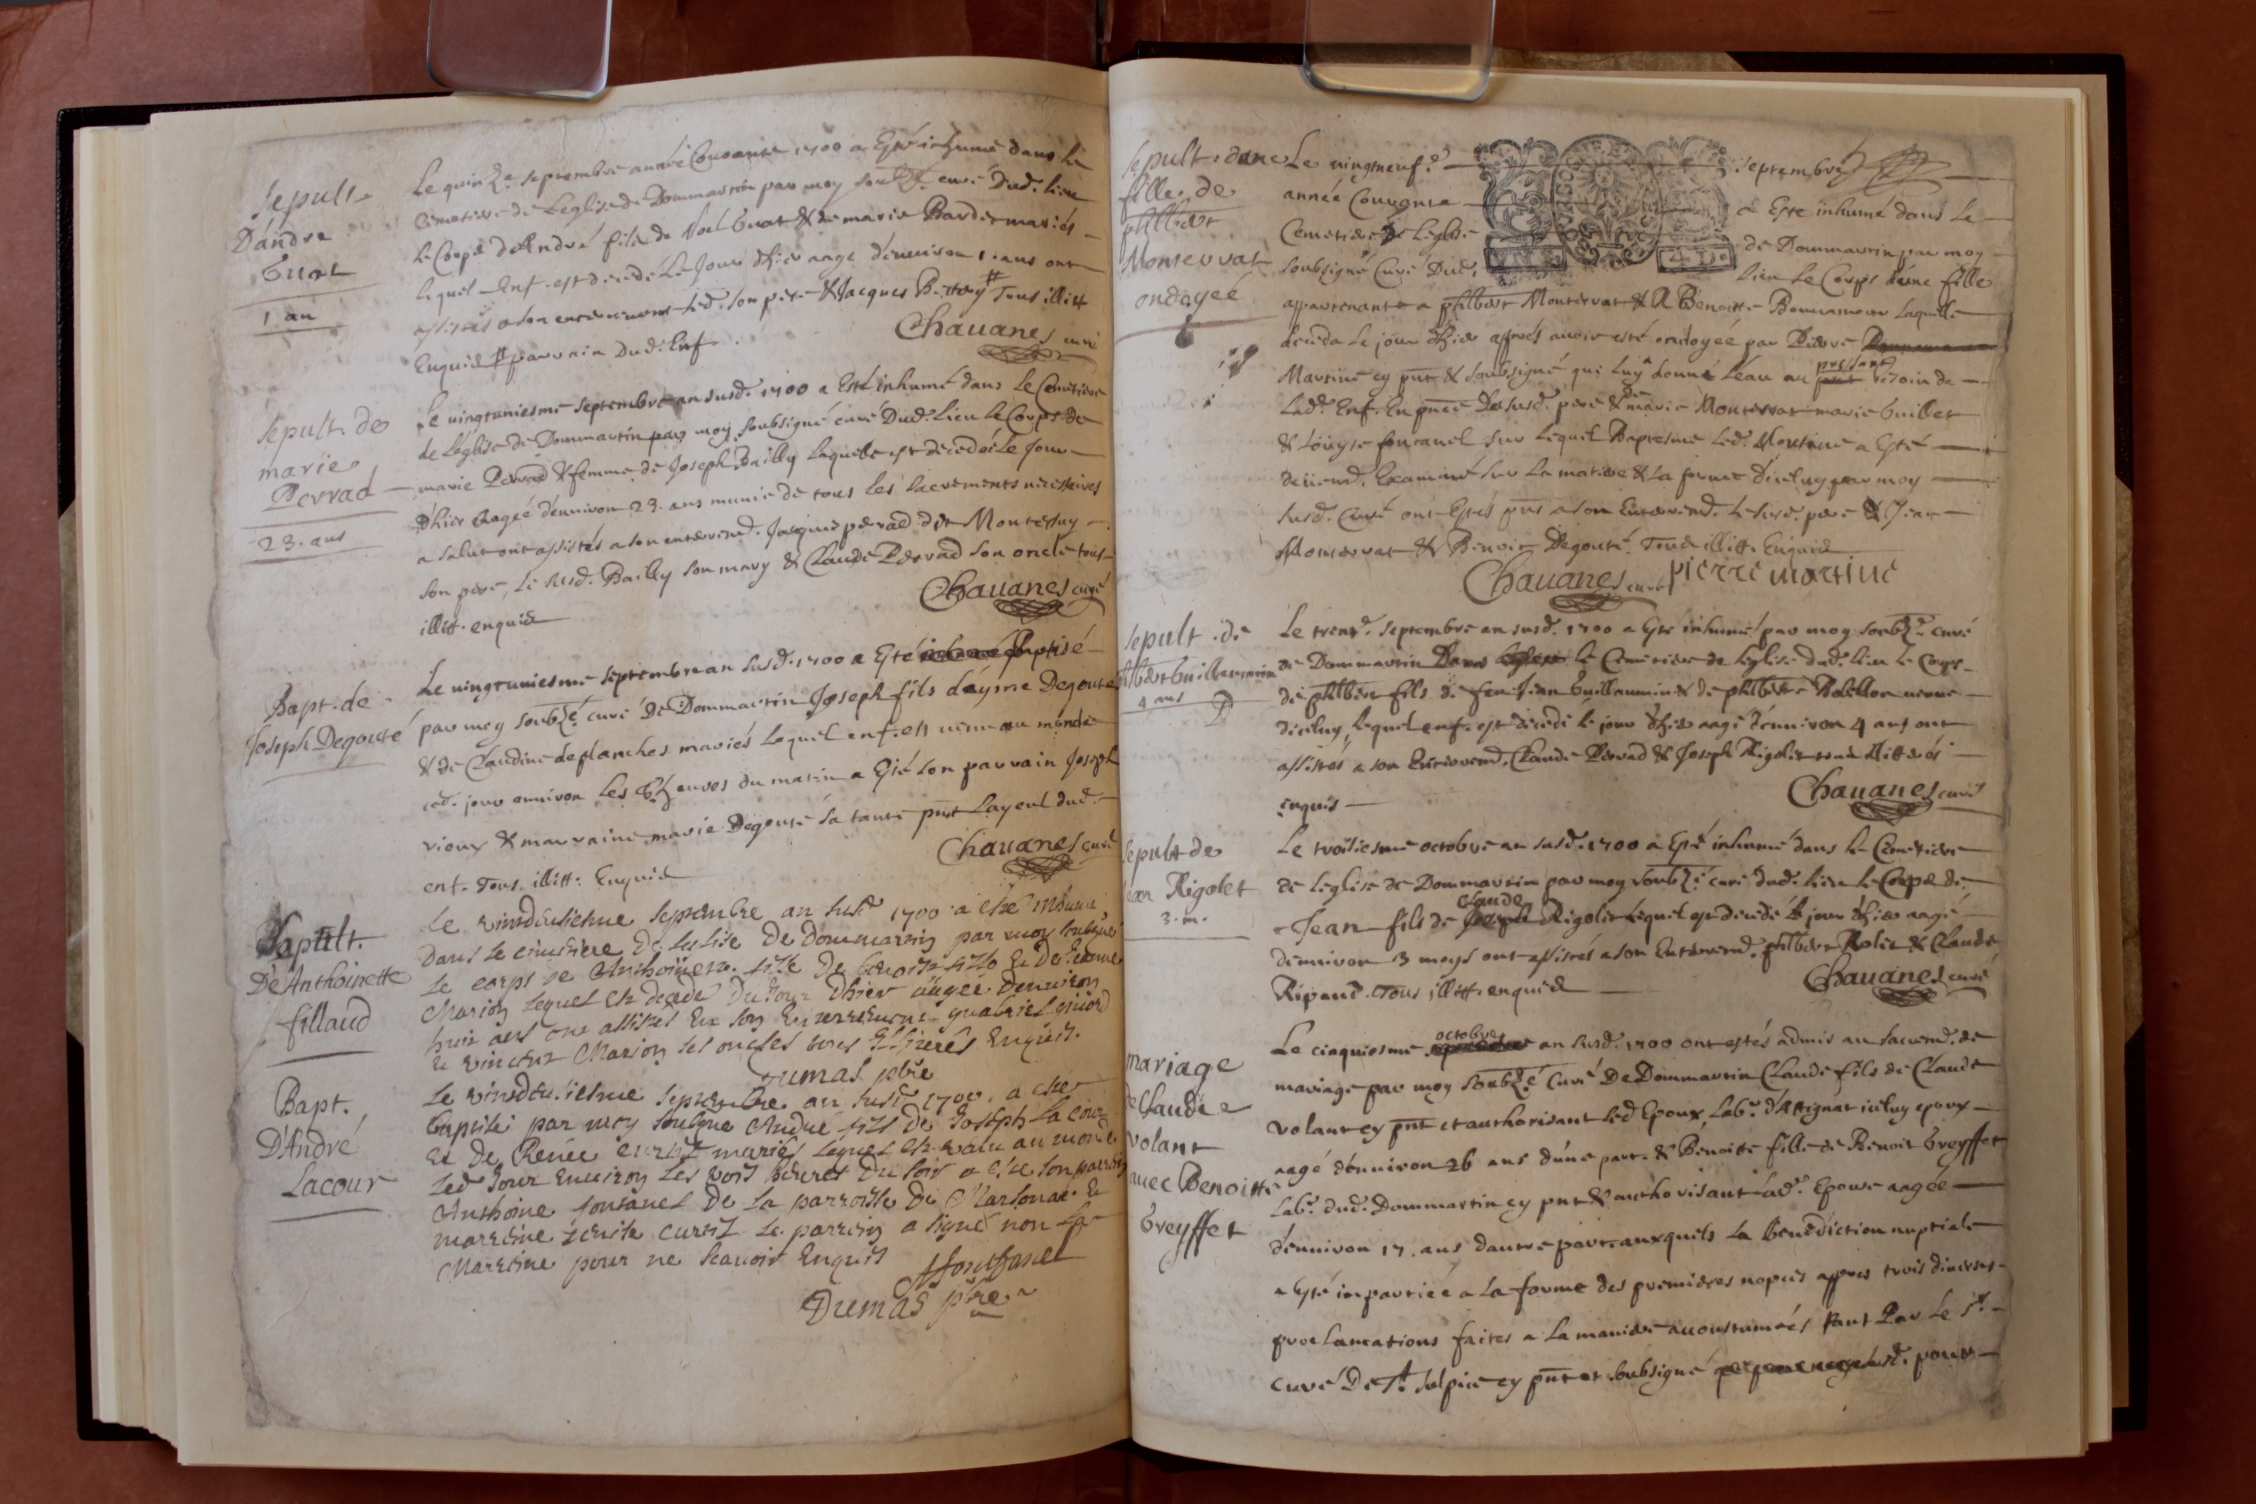 Sepult.
D'andre
Guat
1 an
Le quinze septembre année Courante 1700 a Esté inhumé dans le
Cimetiere de Leglise de Dommartin par moy curé Dud. lieu
le Corps d'André fils de Noel Guat & de marie Bardet mariés
lequel Enf. est decedé le Jour d'hier aagé d'environ 1. ans ont
assistés a son enterrement led. son pere & Jacques Tous illitt
Enquis parrain Dud. Enf.
Chauanes curé
Sepult. de
marie
Perrad
23. ans
Le vingtuniesme septembre an susd. 1700 a Esté inhumé dans le Cemetiere
de Léglise de Dommartin par moy soubsigné curé Dud. lieu le Corps de
marie Perrad & femme de Joseph Bailly laquelle est decedée le Jour
d'hier aagée d'environ 23. ans munie de tous les sacrements necessaires
a salut ont assistés a son enterremt. Jacques perrad dit Montessuy
son pere, le susd. Bailly son mary & Claude Perrad son oncle tous
illitt. enquis
Chauanes curé
Bapt. de
Joseph Degouté
Le vingtuniesme septembre an susd. 1700 a Esté baptisé
par moy soubzé. curé De Dommartin Joseph fils d'ayme Degouté
& de Claudine desplanches mariés lequel enf. est venu au monde
ced. jour environ les heures du matin a Esté son parrain Joseph
vieux & marraine marie Degouté sa tante pnt Layeul dud.
enf. Tous illitt. Enquis
Chauanes curé
Sepult.
De Anthoinette
fillaud
le vindeusiesme septembre an susd 1700 a esté inhumé
Dans le cimetiere De Leglise De dommartin par moy soubsigné
Le corps de Anthoinette fille De benoist fillo Et De
Marion lequel est decedé Du Jour D'hier aagée Denviron
huit ans ont assistes En son Enterrement
Et vincent Marion ses oncles tous illiterés Enquis.
Dumas pbre
Bapt.
D'André
Lacour
Le vindeusiesme septembre an susd 1700. a esté
baptisé par moy soubsigné André fils De Joseph La cour
Et De Renée curtit mariés lequel est venu au monde
led Jour Environ les trois heures Du soir a esté son parrein
Anthoine fontanel De la parroisse De Marsonas Et
marreine curtit Le parrein a signé non la
Marreine pour ne scavoir Enquis
Afontanel
Dumas pbre
Sepult. dune
fille de
philibert
Monterrat
ondoyée
Le vingtneuf.e septembre
année Courante a Esté inhumé dans le
Cemetiere de Leglise de Dommartin par moy
soubsigné Curé Dud. lieu Le Corps d'une fille
appartenante a philbert Monterrat & A Benoitte Bonnamour laquelle
deceda le jour d'hier apprés avoir esté ondoyée par Pierre
Martine cy pnt & soubsigné qui luy donné léau au present besoin de
Lad. Enf. En pnce Du susd. pere & de marie Monterrat marie Guillet
& Löuyse fontanel sur lequel Baptesme led. Martine a Esté
deüemt. Examiné sur la matiere & la forme d'iceluy par moy
susd. Curé ont Estés pns a son Enterremt. le susd. pere & Jean
Monterrat & Benoit Degouté Tous illitt. Enquis
Chauanes curé pierre martine
Sepult. de
philbert Guillaumin
4 ans
Le trent.e septembre an susd. 1700 a Esté inhumé par moy soubzé. curé
de Dommartin Dans le Cemetiere de leglise dud. lieu le Corps
de philbert fils de feu Jean Guillaumin & de philberte veuve
d'iceluy, lequel enf. est decedé le jour d'hier aagé d'environ 4 ans ont
assistés a son Enterremt. Claude Perrad & Joseph Rigolet tous illitterés
enquis
Chauanes curé
Sepult. de
Jean Rigolet
3. m.
Le troisiesme octobre an susd. 1700 a Esté inhumé dans le Cemetiere
de leglise de Dommartin par moy soubzé. curé dud. lieu le Corps de
Jean fils de Claude Rigolet lequel est decedé le jour d'hier aagé
d'environ 3 moys ont assistés a son Enterremt. philbert Rolet & Claude
Ripaud. Tous illitt. enquis
Chauanes curé
mariage
de Claude
volant
avec Benoitte
Greyffet
Le cinquiesme octobre an susd. 1700 ont estés admis au sacremt. de
mariage par moy soubzé. Curé De Dommartin Claude fils de Claude
volant cy pnt et authorisant led Epoux, Lab.r d'Attignat iceluy epoux
aagé d'environ 26 ans d'une part. & Benoitte fille de Benoit Greyffet
Lab.r dud. Dommartin cy pnt & authorisant lad. Epouse aagée
d'environ 17. ans d'autre part. auxquels la Benediction nuptiale
a Esté impartiée a la forme des premieres nopces appres trois diverses
proclamations faites a la maniere accoustumées tant Par le Sr.
curé De St. Sulpice cy pnt et soubsigné pour